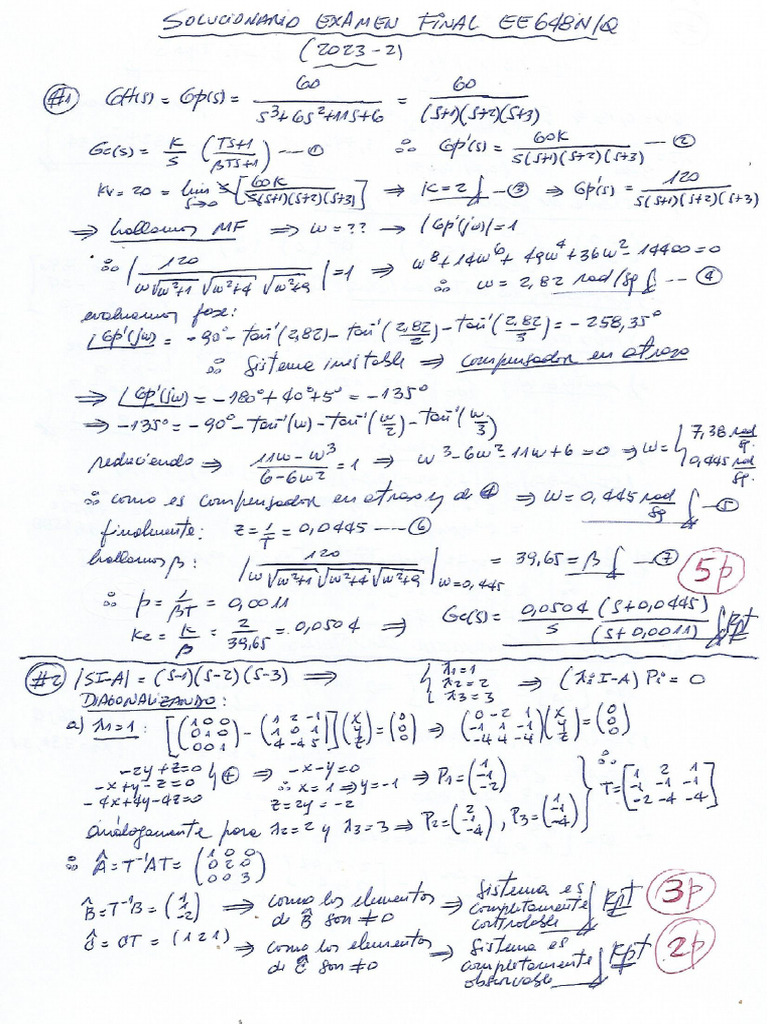 SOLUCIONARIO EXAMEN FINAL EE648N/Q
(2023-2)
#1 GH(s) = Gp(s) = 60 / (s³+6s²+11s+6) = 60 / ((s+1)(s+2)(s+3))
Gc(s) = K/s ((Ts+1)/(βTs+1)) --- ① ∴ Gp'(s) = 60K / (s(s+1)(s+2)(s+3)) --- ②
Kv = 20 = lim s→0 s[60K / (s(s+1)(s+2)(s+3))] ⇒ K=2 --- ③ ⇒ Gp'(s) = 120 / (s(s+1)(s+2)(s+3))
⇒ hallamos MF ⇒ w=?? → |Gp'(jw)|=1
∴ |120 / (w√(w²+1) √(w²+4) √(w²+9))|=1 ⇒ w⁸+14w⁶+49w⁴+36w²-14400=0
∴ w = 2,82 rad/sg --- ④
evaluamos fase:
∠Gp'(jw) = -90°-tan⁻¹(2,82)-tan⁻¹(2,82/2)-tan⁻¹(2,82/3) = -258,35°
∴ Sistema inestable ⇒ compensador en atraso
⇒ ∠Gp'(jw) = -180°+40°+5° = -135°
⇒ -135° = -90°-tan⁻¹(w)-tan⁻¹(w/2)-tan⁻¹(w/3)
reduciendo ⇒ (11w-w³)/(6-6w²) = 1 ⇒ w³-6w²-11w+6=0 ⇒ w={7,38 rad/sg. 0,445 rad/sg.
∴ como es compensador en atraso y de ④ ⇒ w=0,445 rad/sg --- ⑤
finalmente: z=1/T=0,0445 --- ⑥
hallamos β: |120 / (w√(w²+1) √(w²+4) √(w²+9))| w=0,445 = 39,65 = β --- ⑦ 5p
∴ p=1/βT=0,0011
Kc = K/β = 2/39,65 = 0,0504 ⇒ Gc(s) = 0,0504/s (s+0,0445)/(s+0,0011) Rpt
#2 |SI-A| = (s-1)(s-2)(s-3) ⇒ {λ1=1 λ2=2 λ3=3 ⇒ (λiI-A)Pi=0
DIAGONALIZANDO:
a) λ1=1: [(1 0 0; 0 1 0; 0 0 1) - (1 2 -1; 1 0 1; 4 -4 5)](x y z)=(0 0 0) ⇒ (0 -2 1; -1 1 -1; -4 4 -4)(x y z)=(0 0 0)
-2y+z=0
-x+y-z=0
-4x+4y-4z=0
⇒ -x-y=0
∴ x=1 ⇒ y=-1
z=2y=-2
⇒ P1=(1 -1 -2)
∴ T=[1 2 1; -1 -1 -1; -2 -4 -4]
análogamente para λ2=2 y λ3=3 ⇒ P2=(2 -1 -4), P3=(1 -1 -4)
∴ Â=T⁻¹AT=(1 0 0; 0 2 0; 0 0 3)
B̂=T⁻¹B=(1 1 -2) ⇒ como los elementos de B̂ son ≠0 ⇒ Sistema es completamente controlable Rpt 3p
Ĉ=CT=(1 2 1) ⇒ como los elementos de Ĉ son ≠0 ⇒ Sistema es completamente observable Rpt 2p